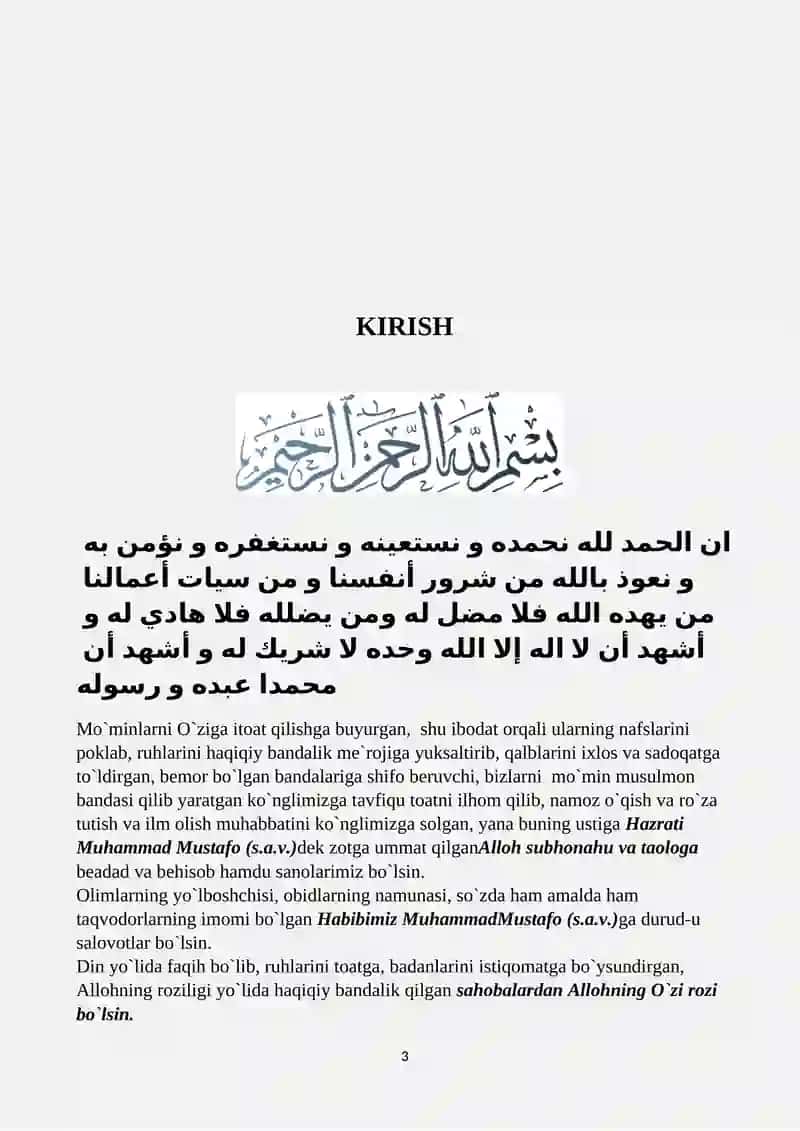 KIRISH
بِسْمِ ٱللَّهِ ٱلرَّحْمَٰنِ ٱلرَّحِيمِ
ان الحمد لله نحمده و نستعينه و نستغفره و نؤمن به
و نعوذ بالله من شرور أنفسنا و من سيات أعمالنا
من يهده الله فلا مضل له ومن يضلله فلا هادي له و
أشهد أن لا اله إلا الله وحده لا شريك له و أشهد أن
محمدا عبده و رسوله
Mo`minlarni O`ziga itoat qilishga buyurgan, shu ibodat orqali ularning nafslarini
poklab, ruhlarini haqiqiy bandalik me`rojiga yuksaltirib, qalblarini ixlos va sadoqatga
to`ldirgan, bemor bo`lgan bandalariga shifo beruvchi, bizlarni mo`min musulmon
bandasi qilib yaratgan ko`nglimizga tavfiqu toatni ilhom qilib, namoz o`qish va ro`za
tutish va ilm olish muhabbatini ko`nglimizga solgan, yana buning ustiga Hazrati
Muhammad Mustafo (s.a.v.)dek zotga ummat qilganAlloh subhonahu va taologa
beadad va behisob hamdu sanolarimiz bo`lsin.
Olimlarning yo`lboshchisi, obidlarning namunasi, so`zda ham amalda ham
taqvodorlarning imomi bo`lgan Habibimiz MuhammadMustafo (s.a.v.)ga durud-u
salovotlar bo`lsin.
Din yo`lida faqih bo`lib, ruhlarini toatga, badanlarini istiqomatga bo`ysundirgan,
Allohning roziligi yo`lida haqiqiy bandalik qilgan sahobalardan Allohning O`zi rozi
bo`lsin.
3